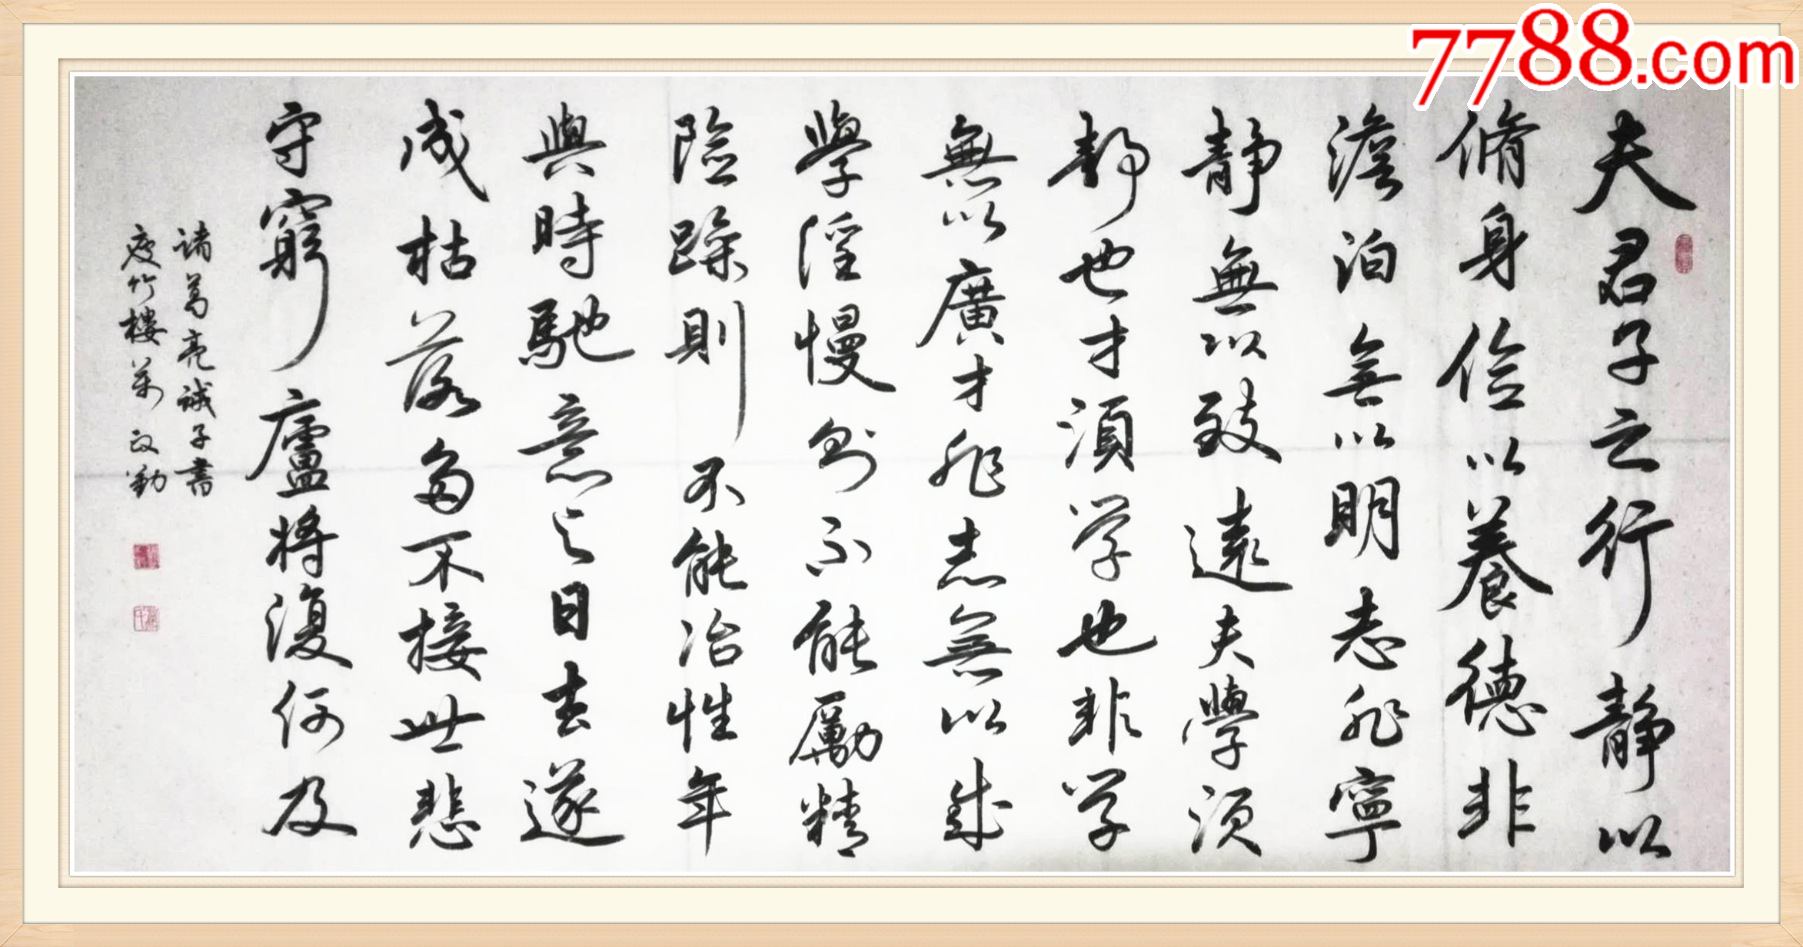 7788.com
夫君子之行靜以
脩身俭以養德非
澹泊無以明志非寧
靜無以致遠夫學須
靜也才須学也非学
無以廣才非志無以成
學淫慢则不能勵精
險躁則不能冶性年
與時馳意与日去遂
成枯落多不接世悲
守窮廬將復何及
诸葛亮诫子書
竹楼